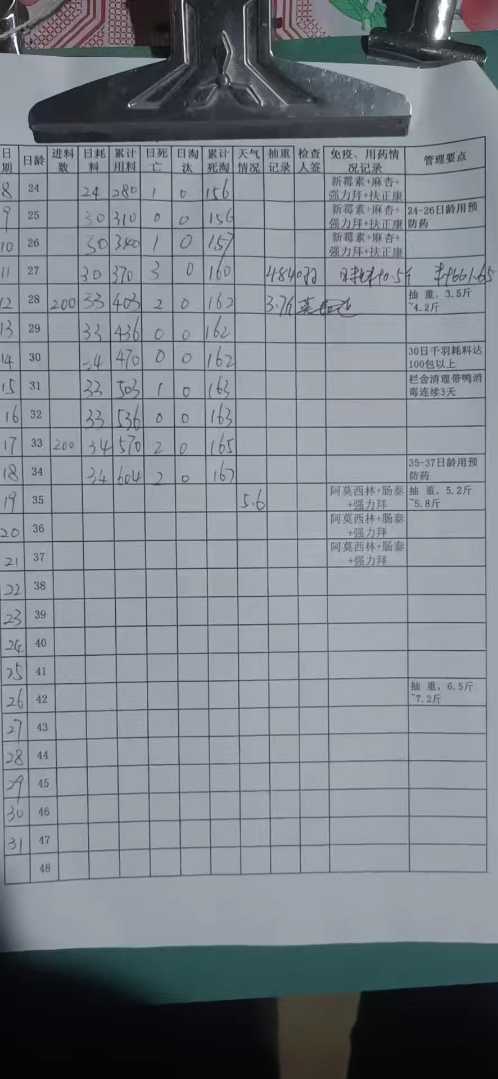 日期 日龄 进料数 日耗料 累计用料 日死亡 日淘汰 累计死淘 天气情况 抽重记录 检查人签 免疫、用药情况记录 管理要点
8 24 24 280 1 0 156 新霉素+麻杏+强力拜+扶正康
9 25 30 310 0 0 156 新霉素+麻杏+强力拜+扶正康 24-26日龄用预防药
10 26 30 340 1 0 157 新霉素+麻杏+强力拜+扶正康
11 27 30 370 3 0 160 4840羽
12 28 200 33 403 2 0 162 3.7斤 抽 重，3.5斤~4.2斤
13 29 33 436 0 0 162
14 30 34 470 0 0 162 30日千羽耗料达100包以上
15 31 33 503 1 0 163 栏舍清理带鸭消毒连续3天
16 32 33 536 0 0 163
17 33 200 34 570 2 0 165
18 34 34 604 2 0 167 35-37日龄用预防药
19 35 5.6 阿莫西林+肠泰+强力拜 抽 重，5.2斤~5.8斤
20 36 阿莫西林+肠泰+强力拜
21 37 阿莫西林+肠泰+强力拜
22 38
23 39
24 40
25 41
26 42 抽 重，6.5斤~7.2斤
27 43
28 44
29 45
30 46
31 47
48